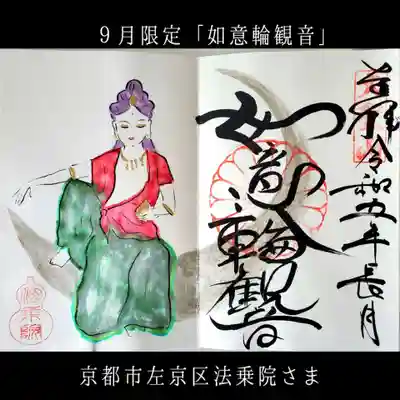 9月限定「如意輪観音」
奉拝令和五年長月
如意輪観音
京都市左京区法乗院さま